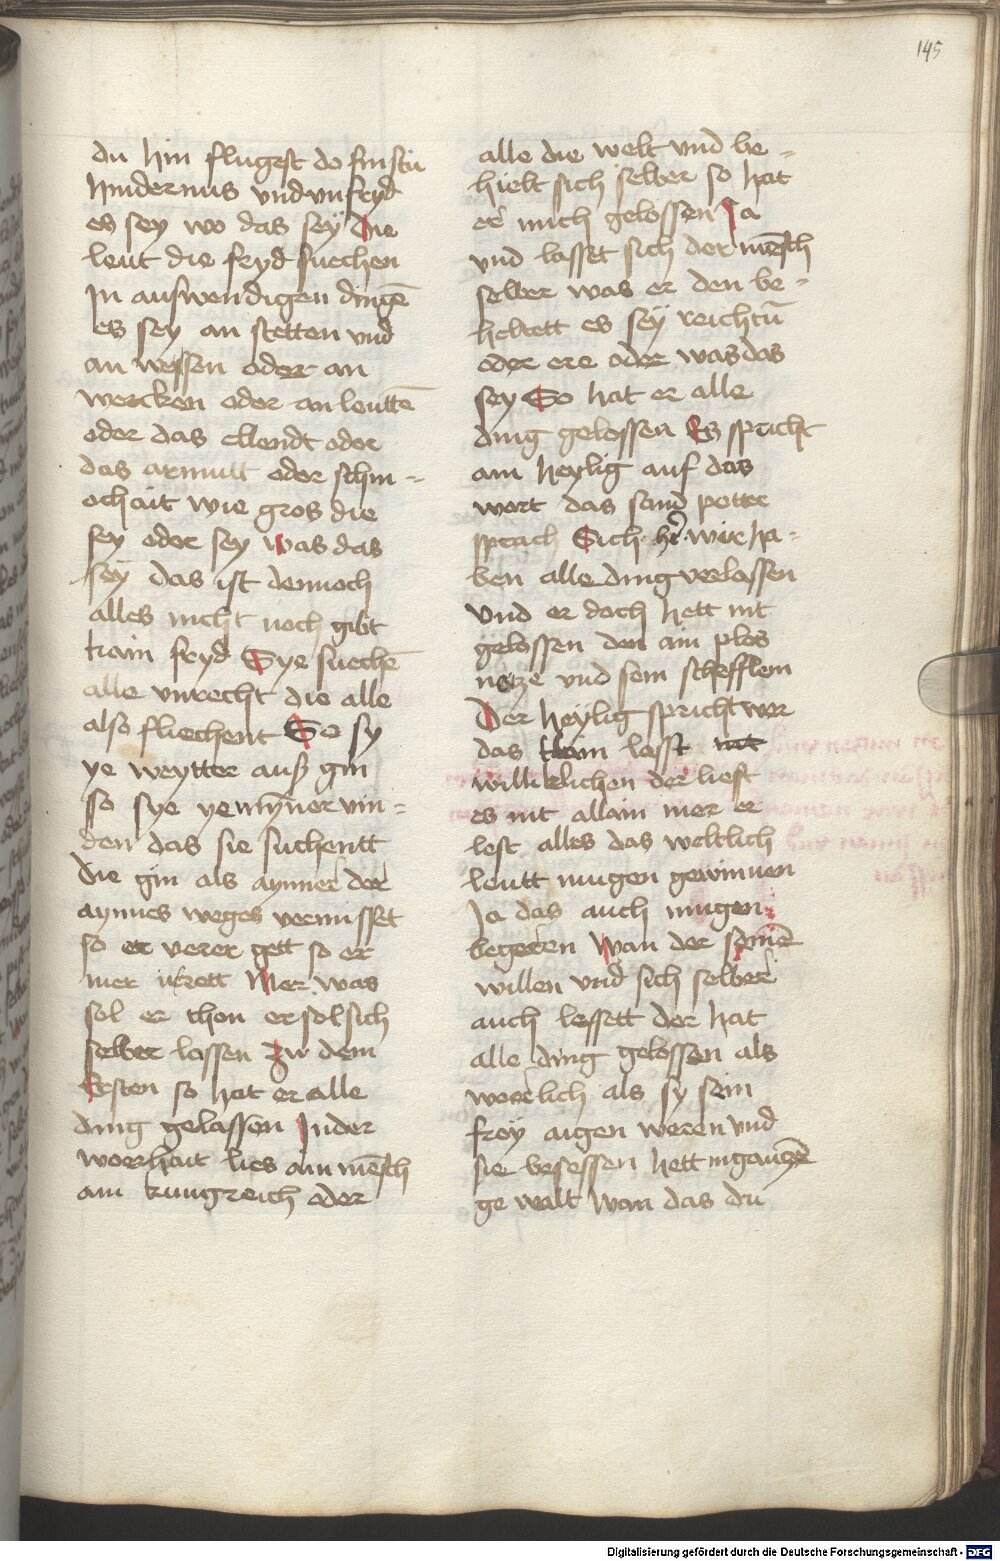 145
du hin flugest do finstu
hindernus vnd vnfryd
es sey wo das seÿ Die
leut die fryd suechen
Jn auswendigen dingē
es sey an stetten vnd
an weyssen oder an
wercken oder an leuttē
oder das ellendt oder
das armutt oder schm-
ochait wie gros die
sey oder sey was das
seÿ das ist dennoch
alles nicht noch gibt
kain fryd Sye suechē
alle vnrecht die alle
also fliechent So sy
ye weytter auß gin
so sye ye mÿner vin-
den das sie suchentt
die gin als aynner der
aynnes weges vermisset
so er verer gett so er
mer irrett Mer was
sol er thon er sol sich
selber lassen zw dem
Ersten so hat er alle
ding gelassen Jn der
woerhait lies ain mēsch
ain kungreich oder
alle die welt vnd be-
hielt sich selber so hat
er nnich gelossen Ja
vnd lasset sich der mēsch
selber was er den be-
heltett es seÿ reichtū
oder ere oder was das
sey So hat er alle
ding gelossen Es spricht
ain heylig auf das
wort das sand petter
sprach Sich hr̄ wir ha-
ben alle ding verlassen
Vnd er doch hett nit
gelossen den ain plos
netze vnd sein schefflein
Der heÿlig spricht wer
das klain lasst nit
williklichen der liest
es nit allain mer er
lest alles das weltlich
leutt mugen gewinnen
Ja das auch mugen
begeren Wan der seinē
willen vnd sich selber
auch lessett der hat
alle ding gelossen als
woerlich als sy sein
froÿ aigen weren vnd
sie besessen hett in gantzē
ge walt Wan das du
Digitalisierung gefördert durch die Deutsche Forschungsgemeinschaft - DFG